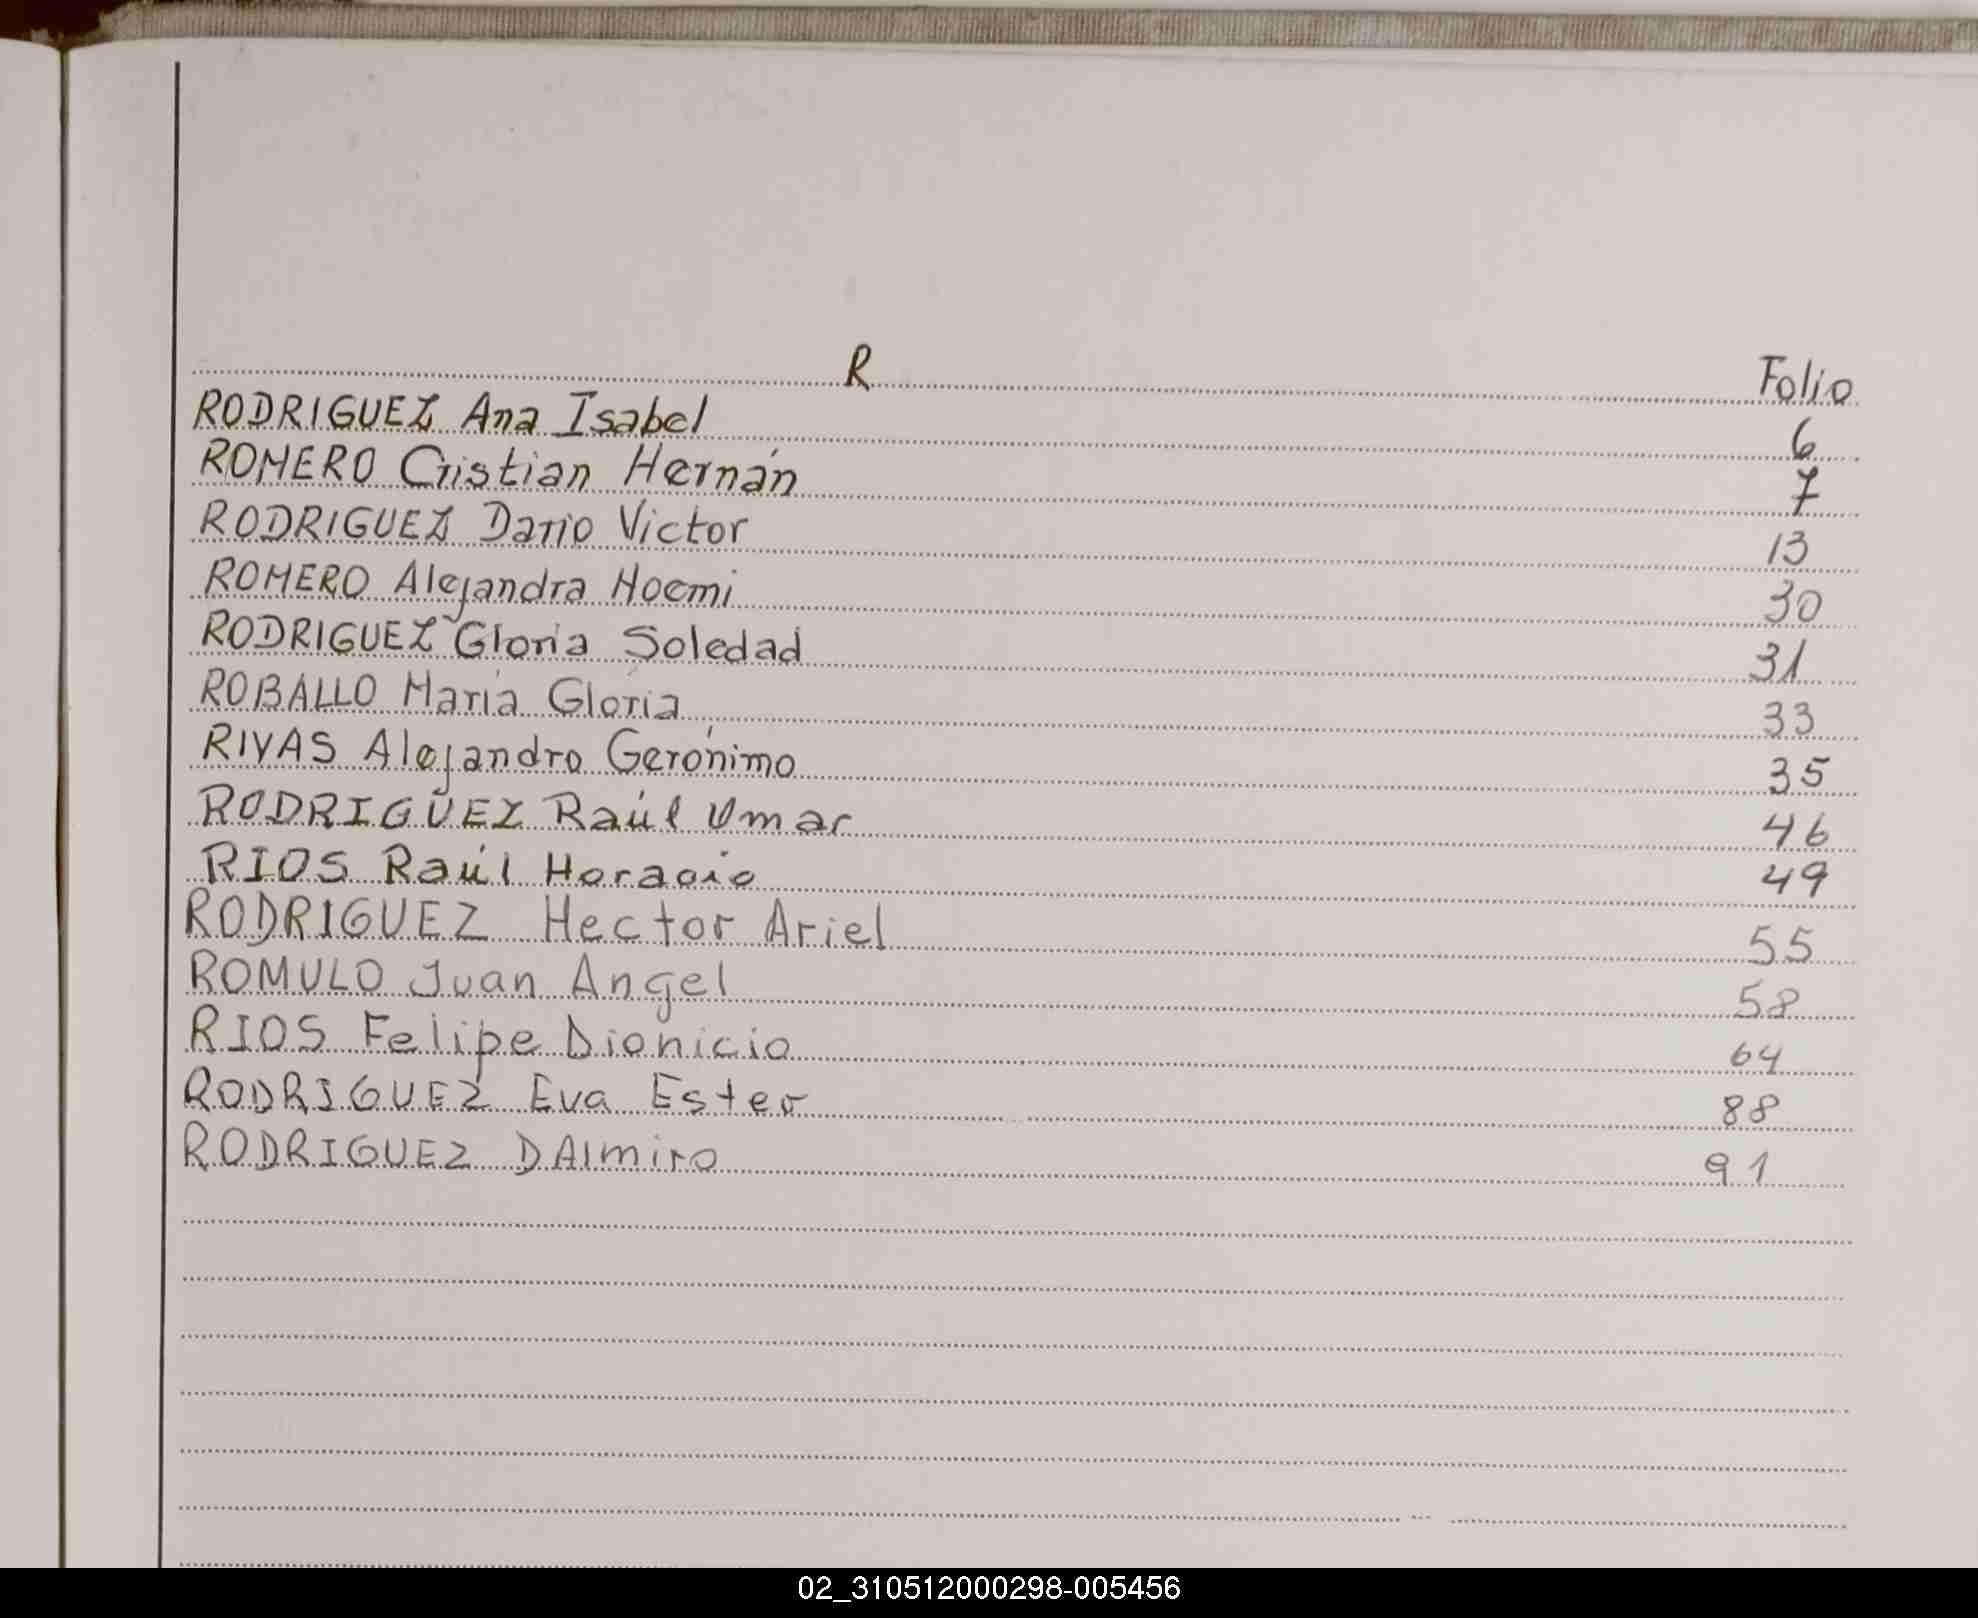 R Folio
RODRIGUEZ Ana Isabel 6
ROMERO Cristian Hernán 7
RODRIGUEZ Dario Victor 13
ROMERO Alejandra Noemi 30
RODRIGUEZ Gloria Soledad 31
ROBALLO María Gloria 33
RIVAS Alejandro Gerónimo 35
RODRIGUEZ Raúl Omar 46
RIOS Raúl Horacio 49
RODRIGUEZ Hector Ariel 55
ROMULO Juan Angel 58
RIOS Felipe Dionicio 64
RODRIGUEZ Eva Ester 88
RODRIGUEZ DAlmiro 91
02_310512000298-005456